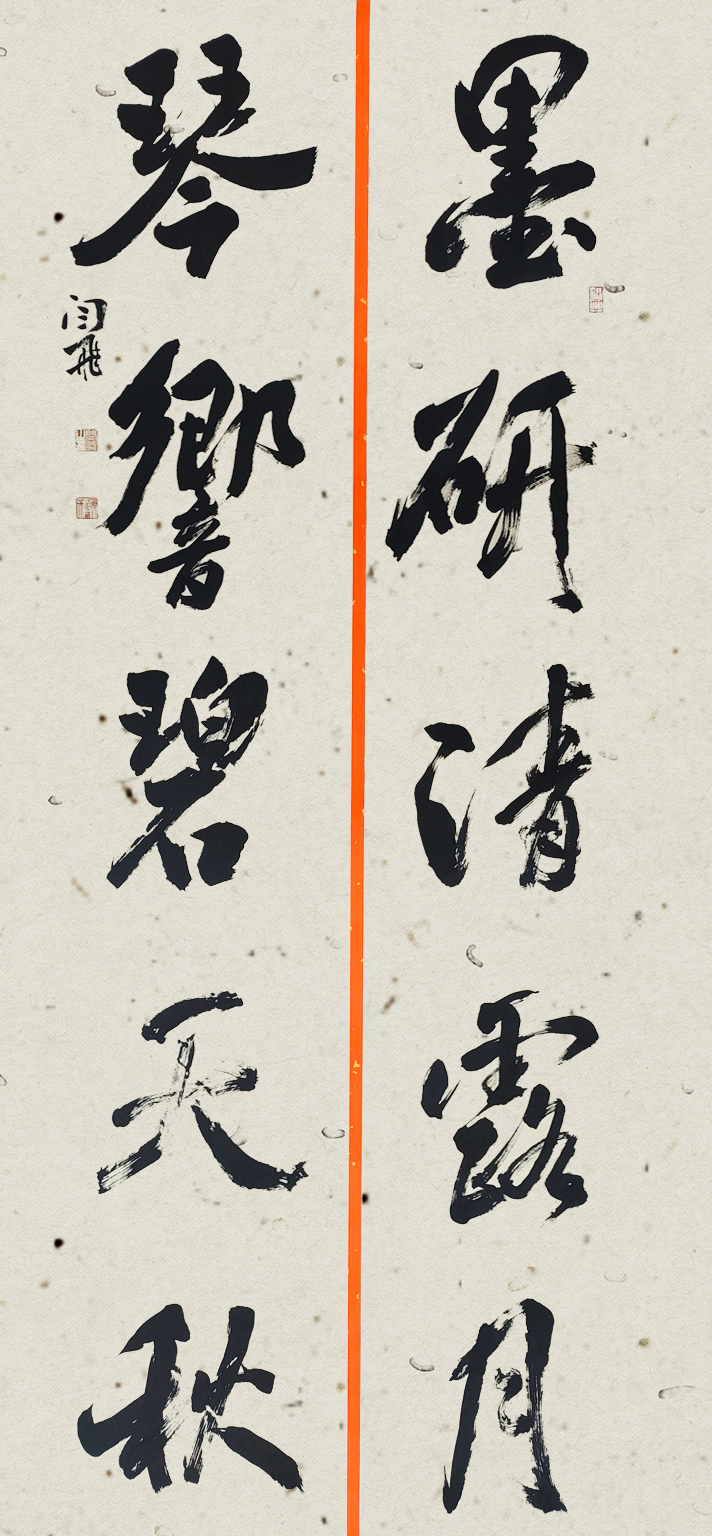 墨研清露月
琴響碧天秋